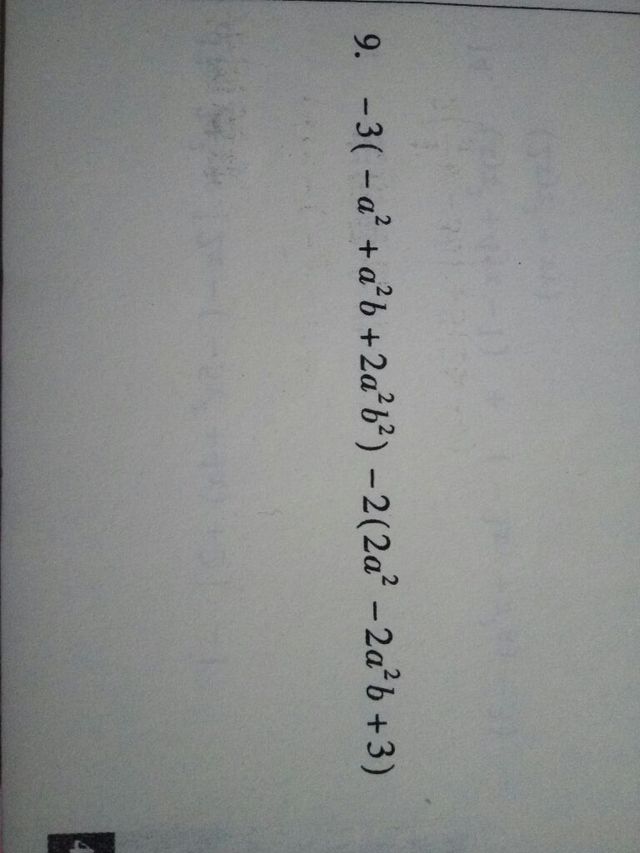 9. −3(−a²+a²b+2a²b²)−2(2a²−2a²b+3)
4